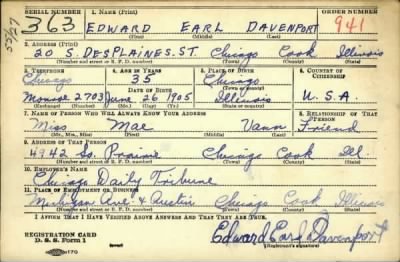 SERIAL NUMBER 1. NAME (Print) ORDER NUMBER
363 EDWARD EARL DAVENPORT 941
(First) (Middle) (Last)
2. ADDRESS (Print)
20 S. DESPLAINES. ST. Chicago Cook Illinois
(Number and street or R. F. D. number) (Town) (County) (State)
3. TELEPHONE 4. AGE IN YEARS 5. PLACE OF BIRTH 6. COUNTRY OF CITIZENSHIP
Chicago 35 Chicago
DATE OF BIRTH (Town or county)
Monroe 2703 June 26 1905 Illinois U.S.A
(Exchange) (Number) (Mo.) (Day) (Yr.) (State or country)
7. NAME OF PERSON WHO WILL ALWAYS KNOW YOUR ADDRESS 8. RELATIONSHIP OF THAT PERSON
Miss Mae Vann Friend
(Mr., Mrs., Miss) (First) (Middle) (Last)
9. ADDRESS OF THAT PERSON
4942 So. Prairie Chicago Cook Ill.
(Number and street or R. F. D. number) (Town) (County) (State)
10. EMPLOYER'S NAME
Chicago Daily Tribune
11. PLACE OF EMPLOYMENT OR BUSINESS
Michigan Ave. & Austin Chicago Cook Illinois
(Number and street or R. F. D. number) (Town) (County) (State)
I AFFIRM THAT I HAVE VERIFIED ABOVE ANSWERS AND THAT THEY ARE TRUE.
REGISTRATION CARD
D. S. S. Form 1 Edward Earl Davenport
(Registrant's signature)